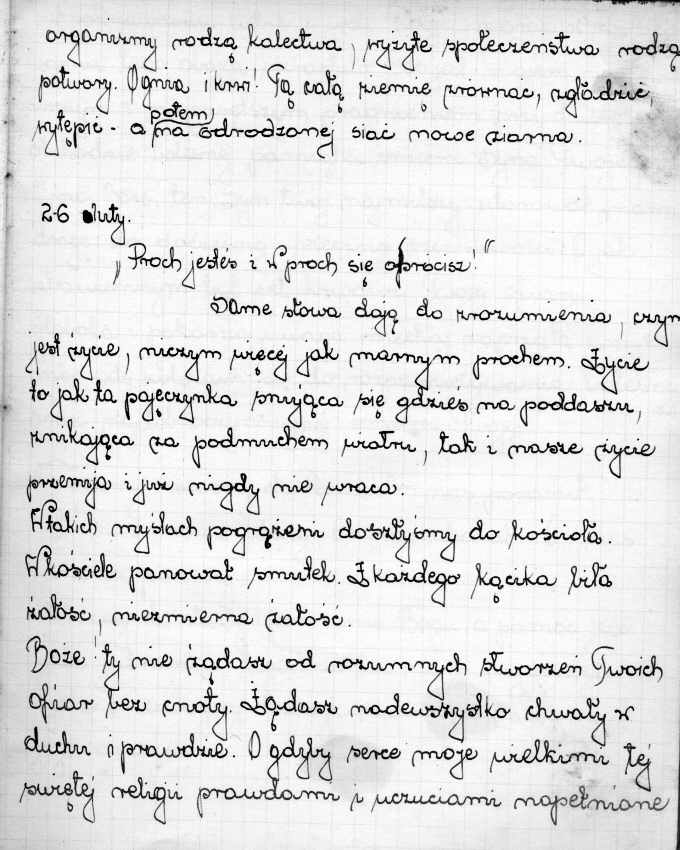 organizmy rodzą kalectwa, wyżyte społeczeństwa rodzą
potwory. Ognia i krwi! Tą całą ziemię zrównać, zgładzić,
wytępić - a potem na odrodzonej siać nowe ziarna.
26 luty.
„Proch jesteś i w proch się obrócisz!"
Same słowa dają do zrozumienia, czym
jest życie, niczym więcej jak marnym prochem. Życie
to jak ta pajęczynka snująca się gdzieś na poddaszu,
znikająca za podmuchem wiatru, tak i nasze życie
przemija i już nigdy nie wraca.
W takich myślach pogrążeni doszłyśmy do kościoła.
W kościele panował smutek. Z każdego kącika biła
żałość, niezmierna żałość.
Boże! ty nie żądasz od rozumnych stworzeń Twoich
ofiar bez cnoty. Żądasz nadewszystko chwały w
duchu i prawdzie. O gdyby serce moje wielkimi tej
świętej religii prawdami i uczuciami napełnione